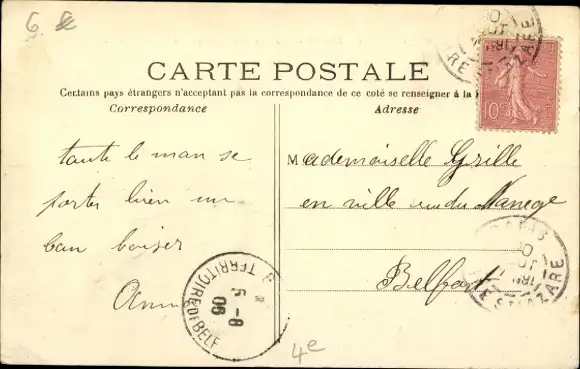 6.
CARTE POSTALE
Certains pays étrangers n'acceptant pas la correspondance de ce coté se renseigner à la
Correspondance
Adresse
toute le man se
porter bien un
bon baiser
Anna
Mademoiselle Grille
en ville rue du Manege
Belfort
10
TERRITOIRE DE BELF
5-8
06
PARIS
ST LAZARE
4e